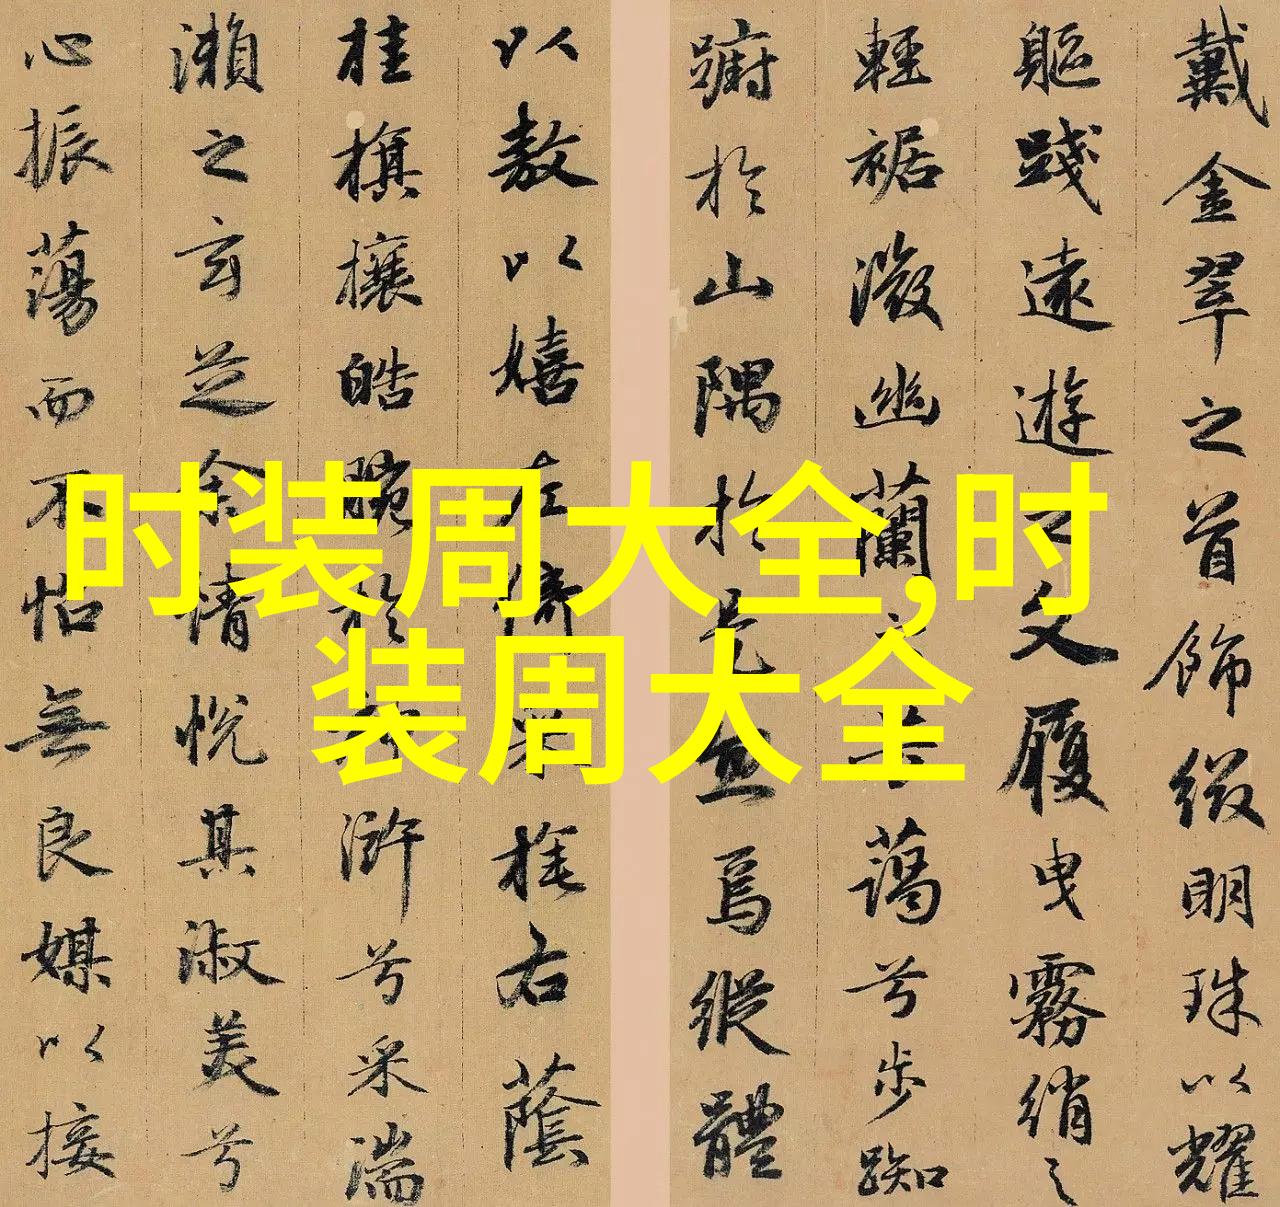 戴金翠之首飾綴明珠以耀
軀踐遠遊之文履曳霧綃之
輕裾微幽蘭之芳藹兮步踟
躕於山隅於是忽焉縱體
以敖以嬉左倚采旄右蔭
桂旗攘皓腕於神滸兮采湍
瀨之玄芝余情悅其淑美兮
心振蕩而不怡無良媒以接
时装周大全,时
装周大全